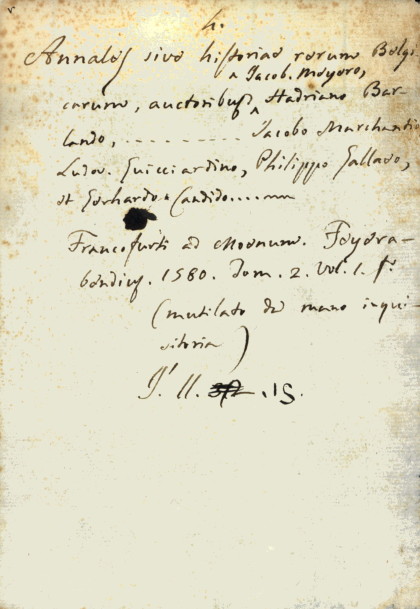 h.
Annales sive historiae rerum Belgi
^ Jacob. Meyero,
carum, auctoribus ^ Hadriano Bar
lando, ........... Jacobo Marchantio
Ludov. Guicciardino, Philippo Gallaeo,
et Gerhardo Candido.......
Francofurti ad Moenum. Feyera-
bendius. 1580. Tom. 2. Vol. 1. f.
(mutilato de mano inqui
sitoria)
11. 15.